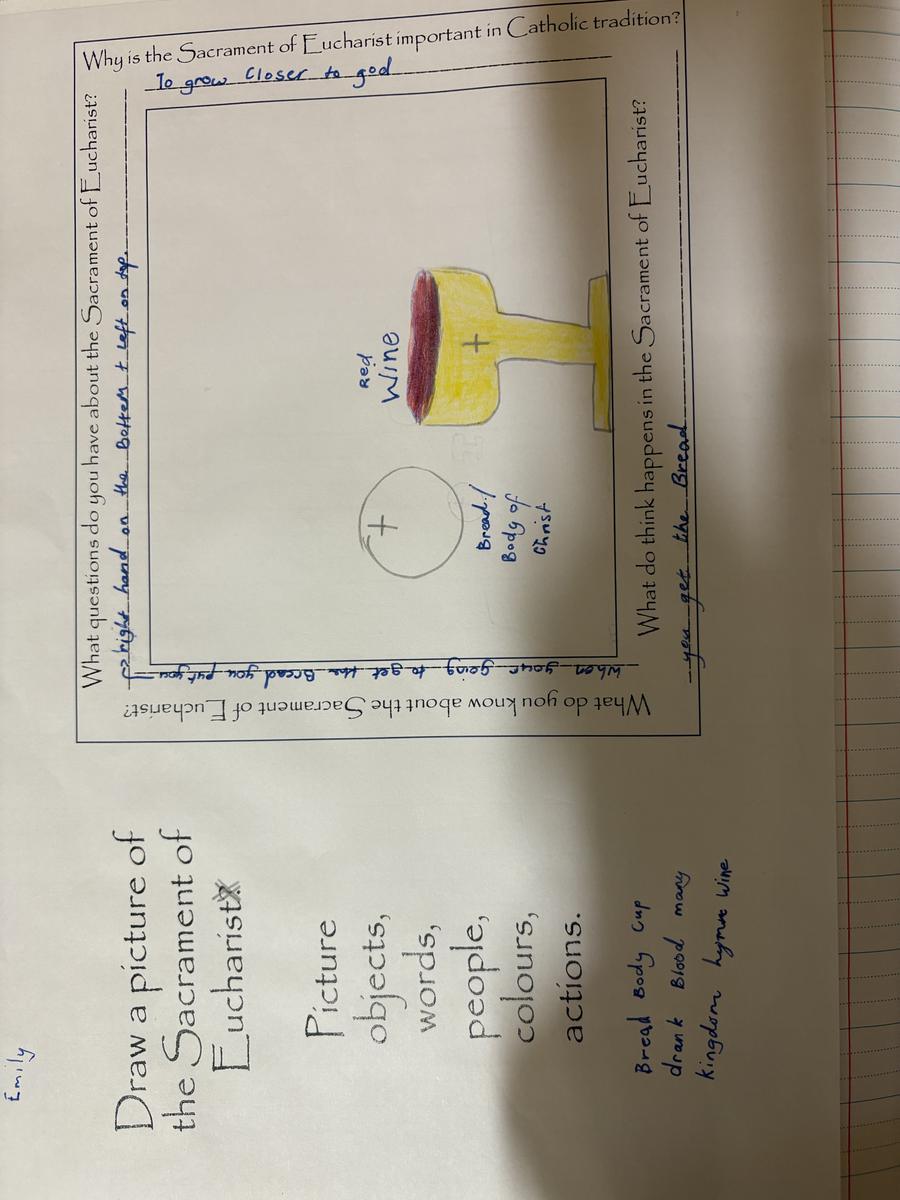 Emily
Draw a picture of
the Sacrament of
Eucharist.
Picture
objects,
words,
people,
colours,
actions.
Bread Body Cup
drank Blood many
kingdom hymn wine
Why is the Sacrament of Eucharist important in Catholic tradition?
To grow Closer to god
What do you know about the Sacrament of Eucharist?
when your going to get the Bread you put you
What questions do you have about the Sacrament of Eucharist?
right hand on the Bottem + left on top.
Red
Wine
Bread/
Body of
Christ
What do think happens in the Sacrament of Eucharist?
you get the Bread